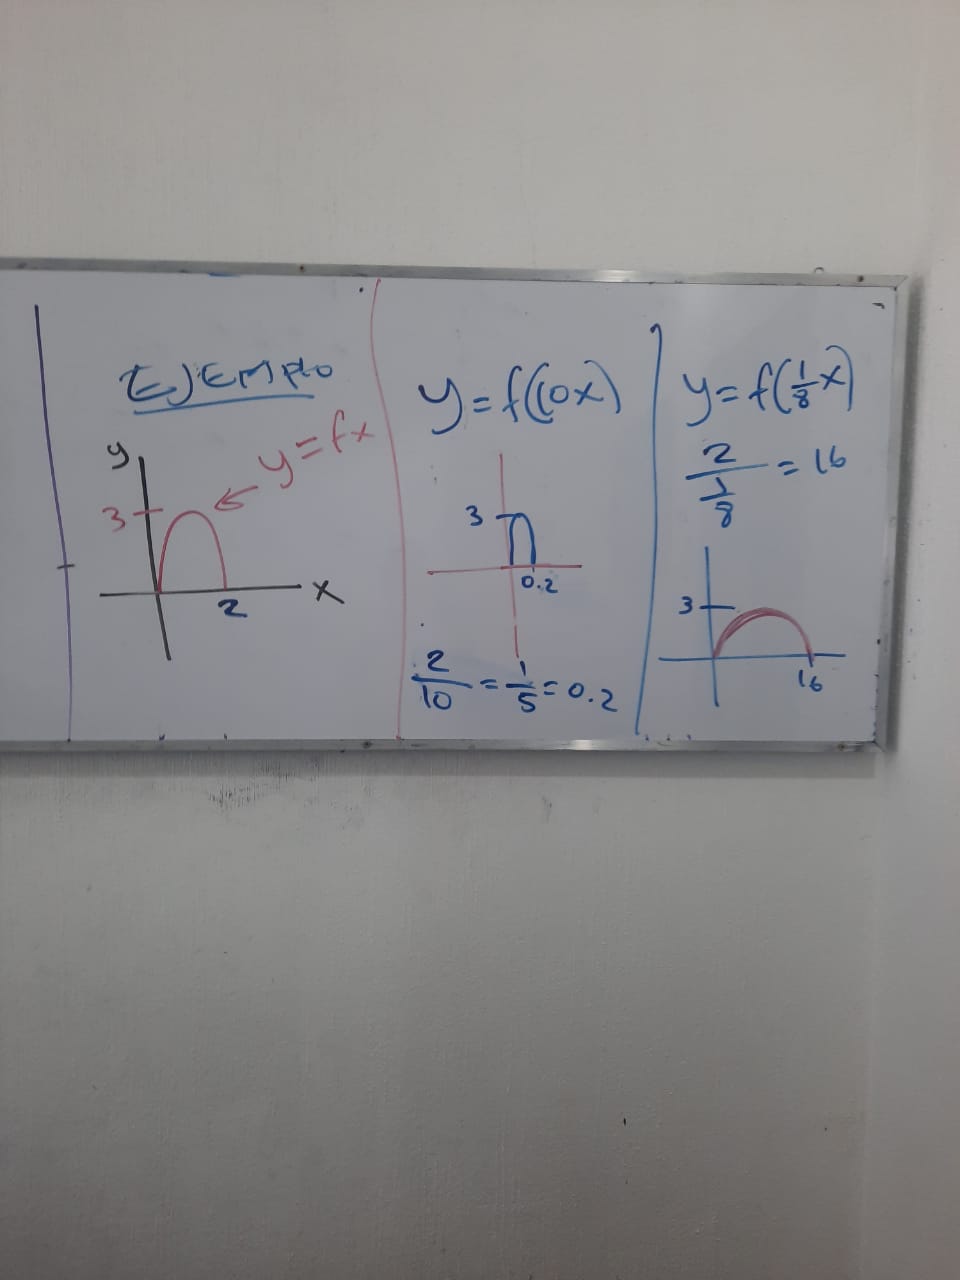 EJEMPLO
y
y=fx
3
2
x
y=f(10x)
3
0.2
2/10 = 1/5 = 0.2
y=f(1/8 x)
2/(1/8) = 16
3
16